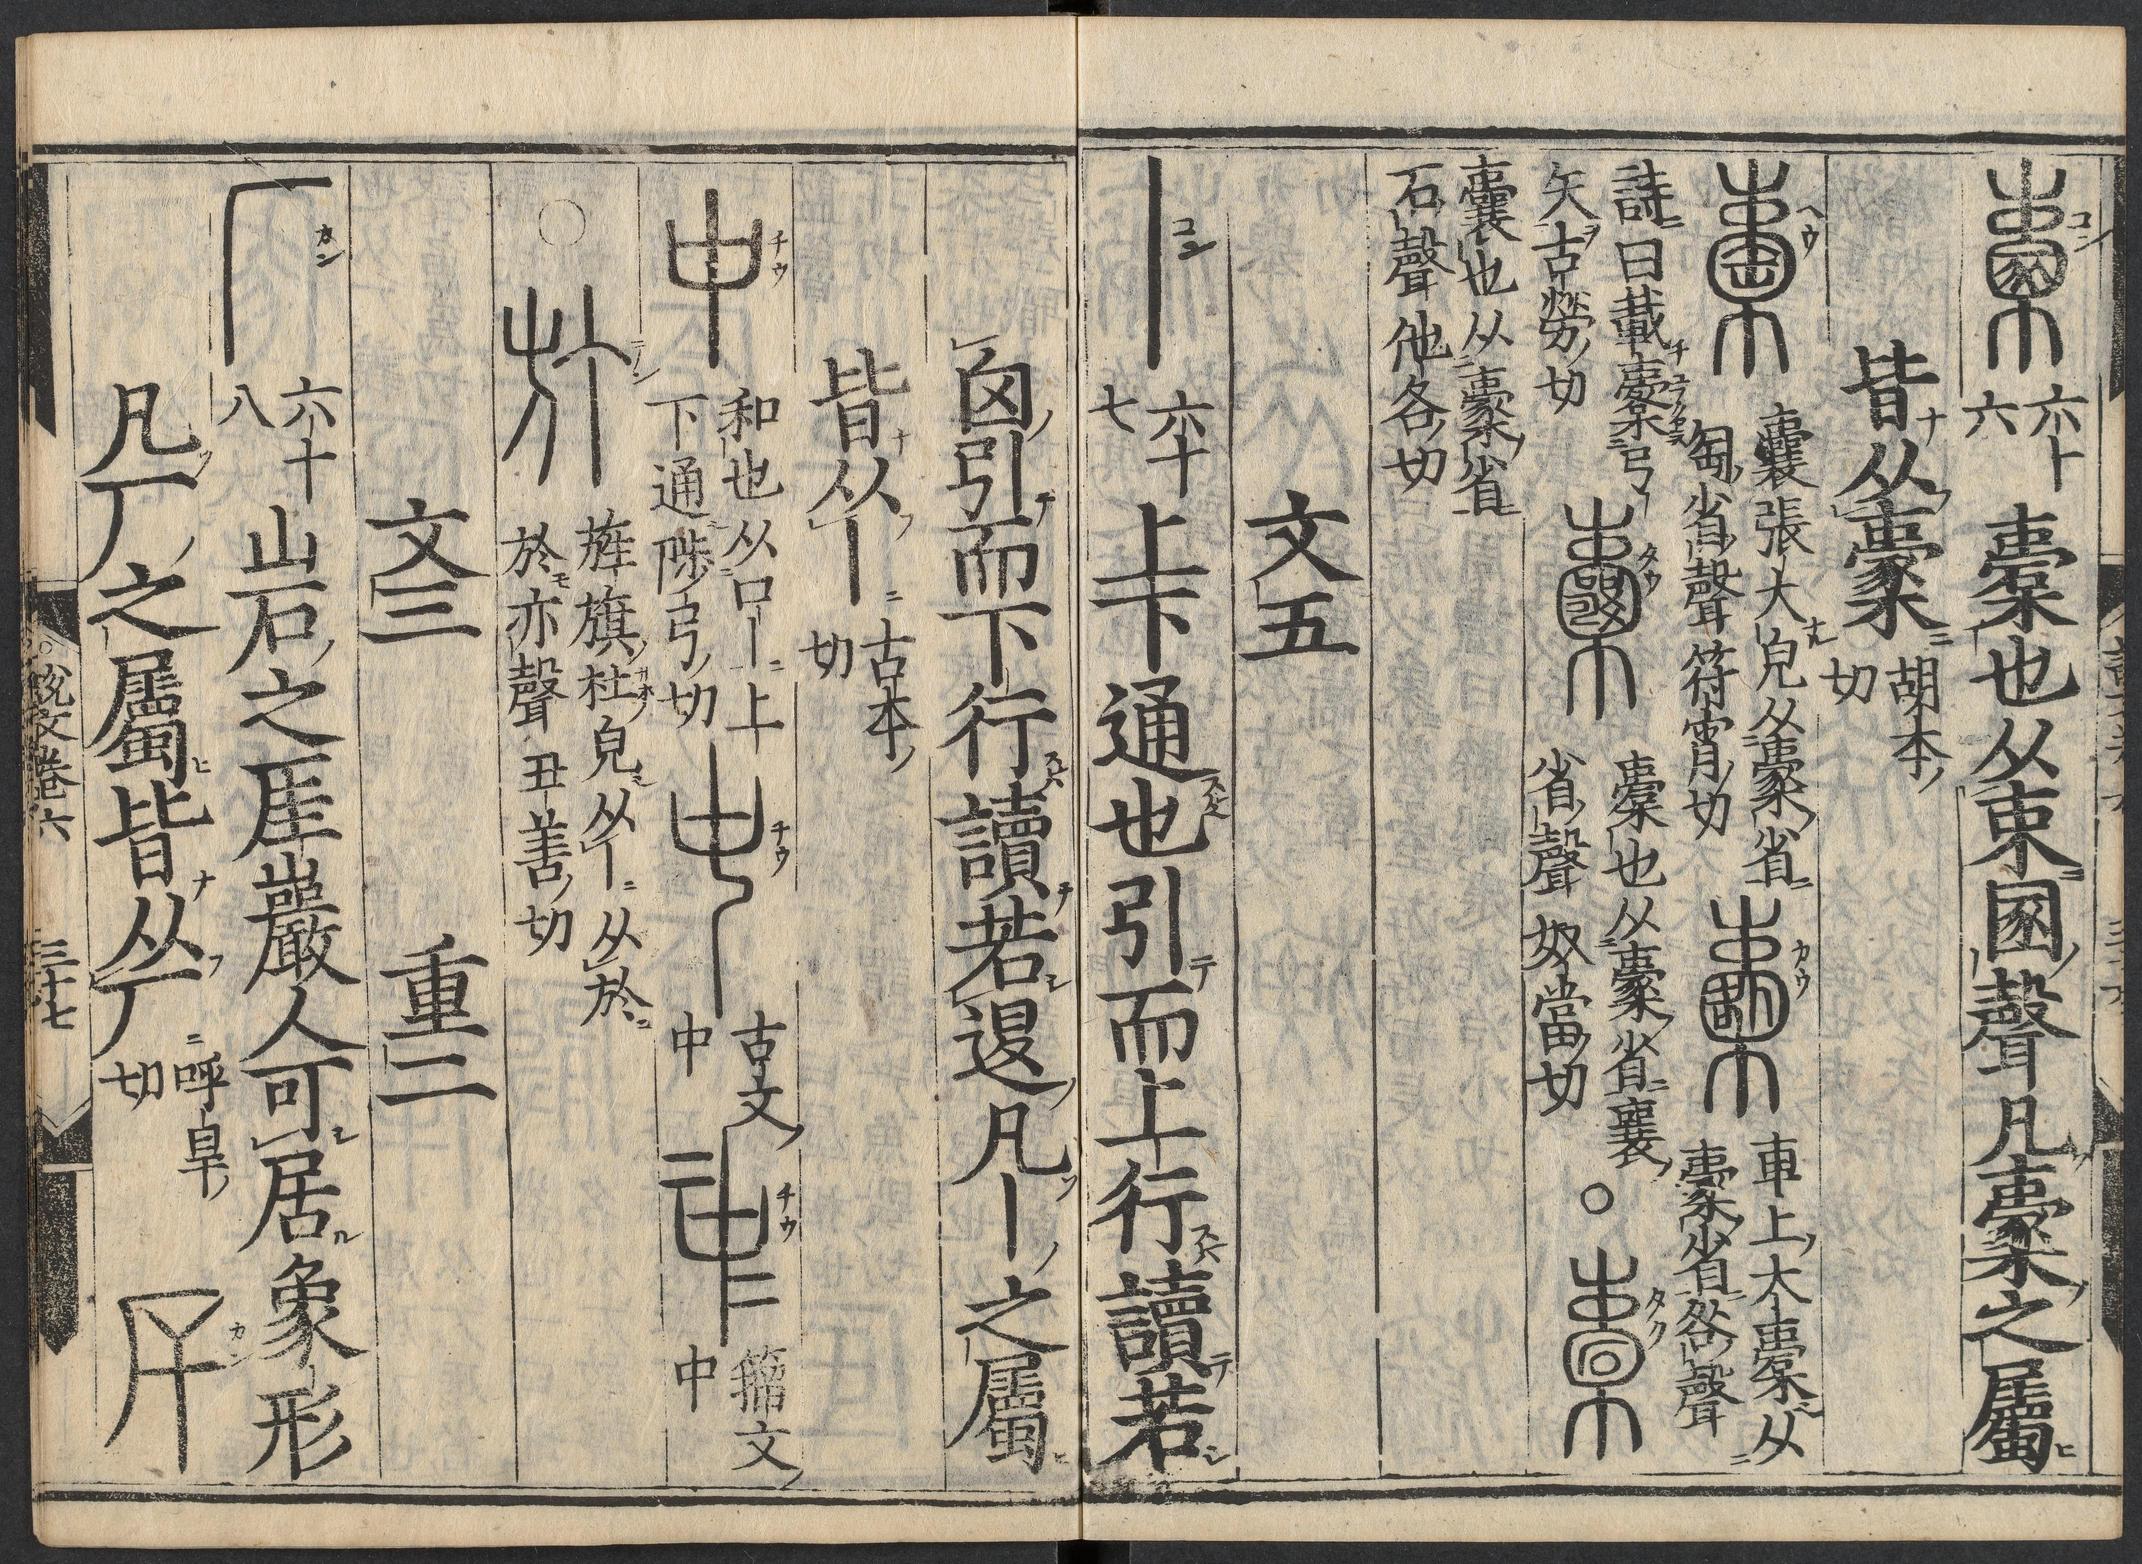 㯻 六十六 橐也从束圂聲凡㯻之屬
皆从㯻 胡本切
囊張大皃从㯻省匋省聲符宵切 車上大橐从㯻省咎聲
詩曰載櫜弓矢古勞切 橐也从㯻省襄省聲奴當切 ○
囊也从㯻省石聲他各切
文五
丨 六十七 上下通也引而上行讀若
囟引而下行讀若退凡丨之屬
皆从丨 古本切
中 和也从口丨上下通陟弓切 古文中 籒文中
○ 旌旗杠皃从丨从㫃㫃亦聲丑善切
文三 重二
厂 六十八 山石之厓巖人可居象形
凡厂之屬皆从厂 呼旱切 厈
說文卷六 三十七